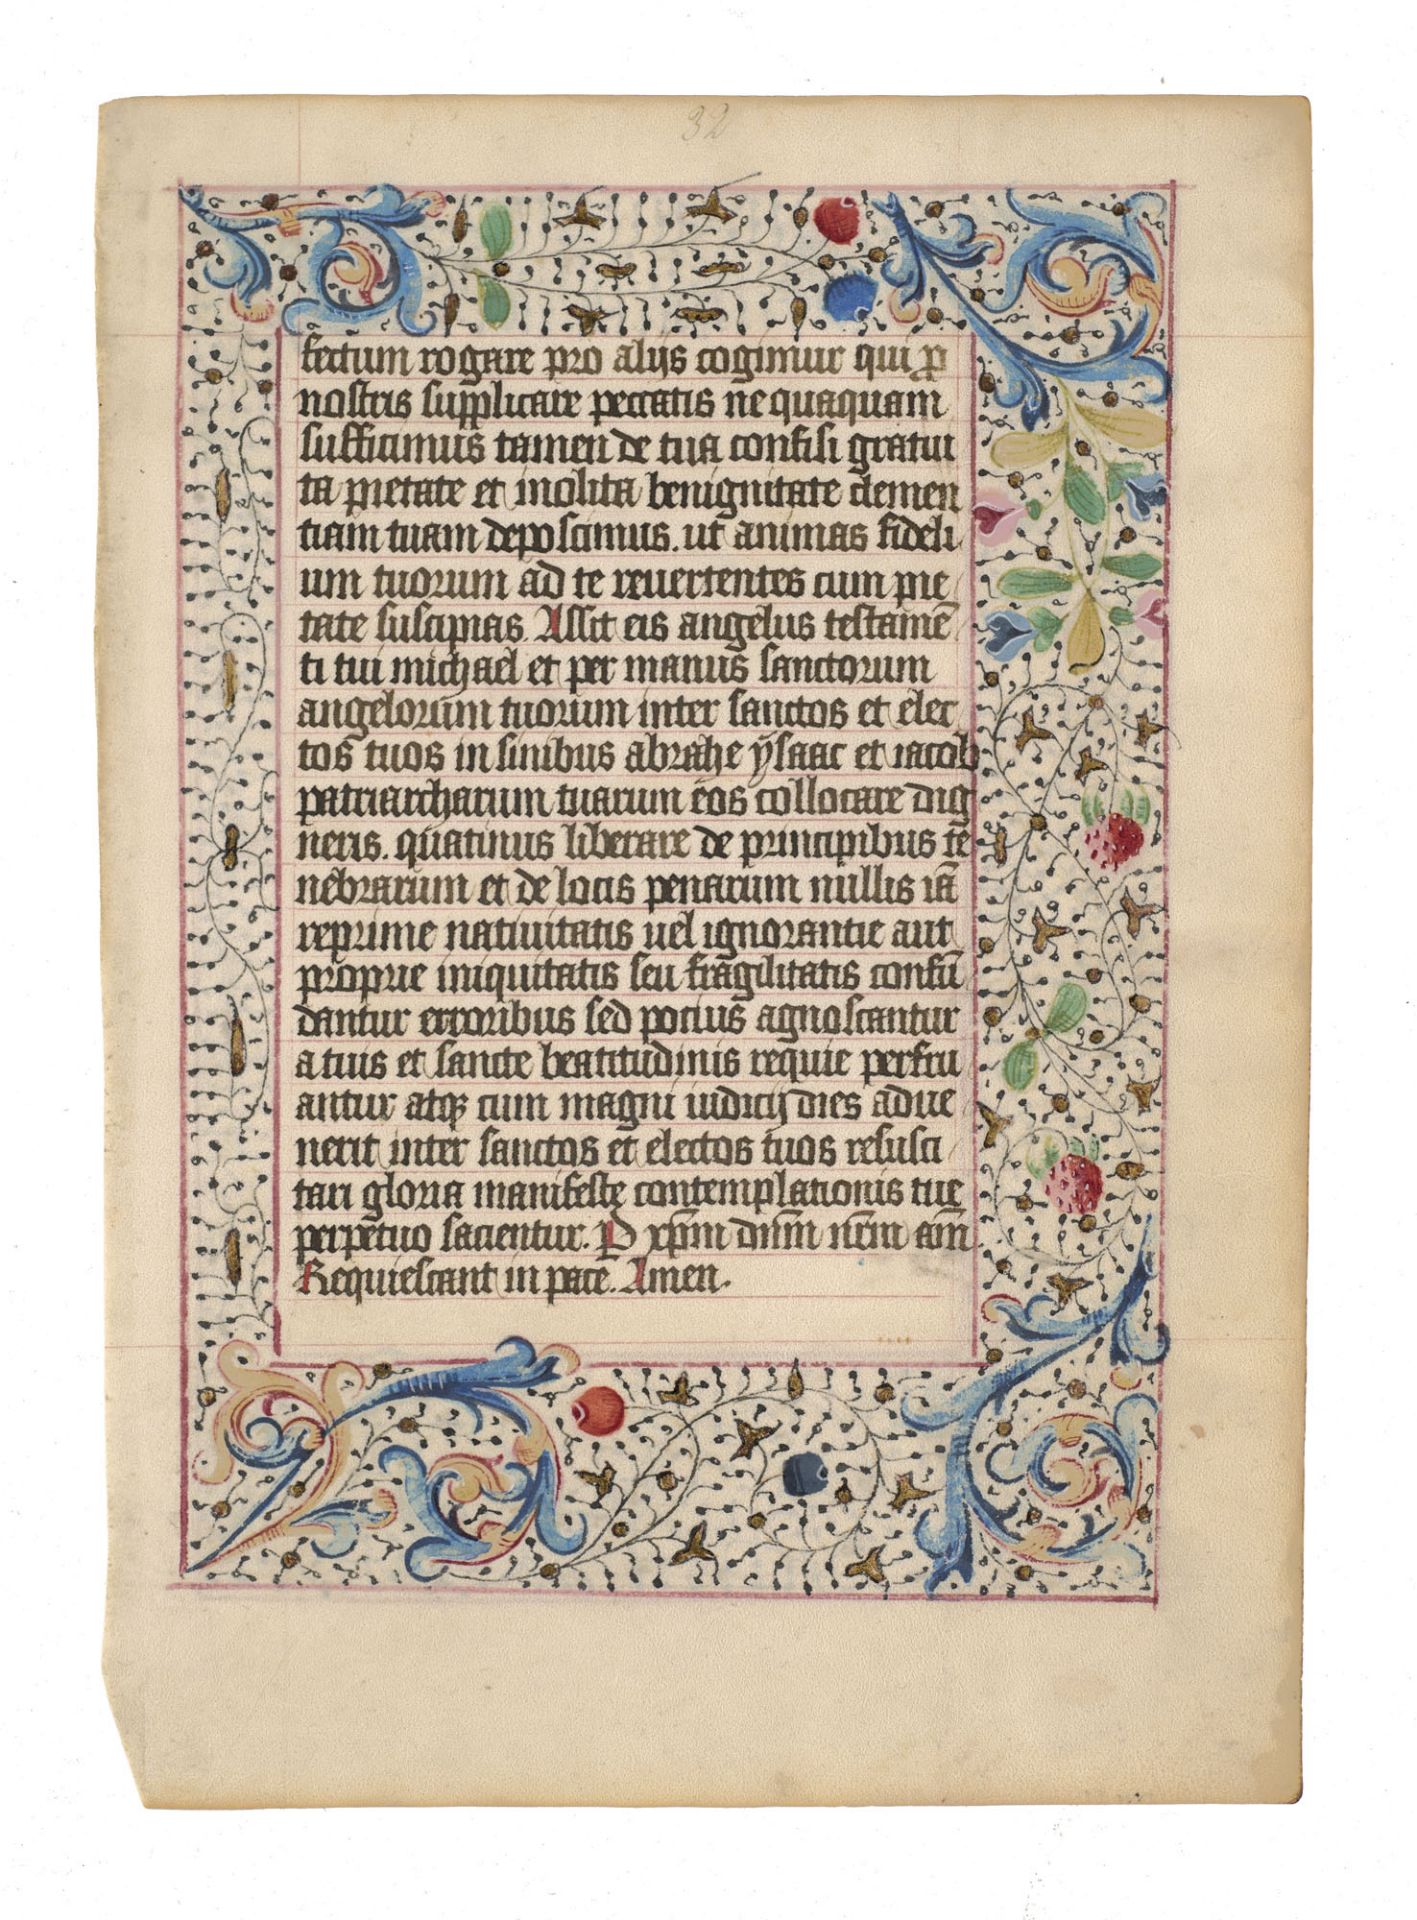 32
fectum rogare pro alijs cogimur qui p̱
nostris supplicare peccatis ne quaquam
sufficimus tamen de tua confisi gratui
ta pietate et inolita benignitate clemen
tiam tuam deposcimus. ut animas fideli
um tuorum ad te reuertentes cum pie
tate suscipias. Assit eis angelus testamē
ti tui michael et per manus sanctorum
angelorum tuorum inter sanctos et elec
tos tuos in sinibus abrahe ysaac et iacob
patriarcharum tuarum eos collocare dig
neris. quatinus liberare de principibus te
nebrarum et de locis penarum nullis iā
reprime natiuitatis uel ignorantie aut
proprie iniquitatis seu fragilitatis confū
dantur erroribus sed pocius agnoscantur
a tuis et sancte beatitudinis requie perfru
antur atqꝫ cum magni iudicij dies adue
nerit inter sanctos et electos tuos resusci
tati gloria manifeste contemplationis tue
perpetuo sacientur. P xp̄m dn̄m nr̄m am̄
Requiescant in pace. Amen.